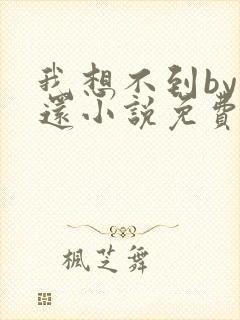 我想不到by
還小說免費
楓芝舞